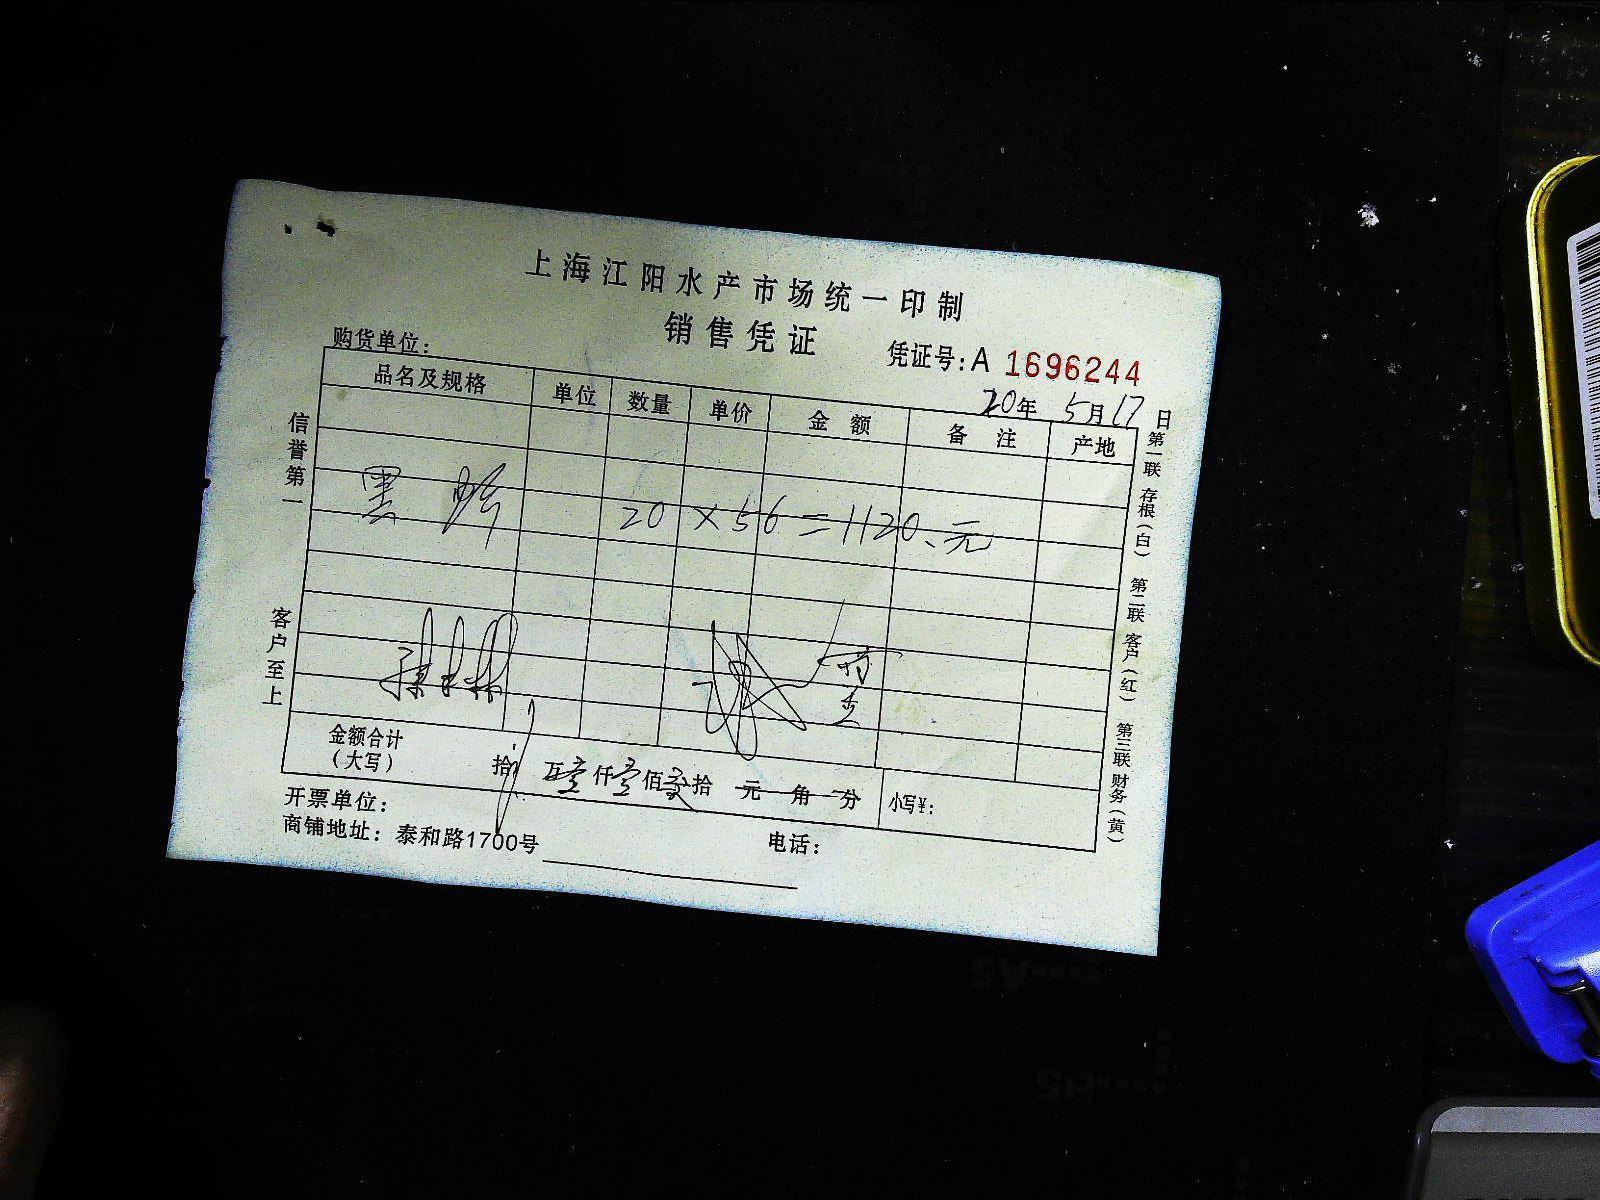 上海江阳水产市场统一印制
销售凭证
购货单位：
凭证号：A 1696244
20年 5月17日
品名及规格 单位 数量 单价 金额 备注 产地
黑 20 × 56 = 1120、元
信誉第一
客户至上
第一联 存根（白） 第二联 客户（红） 第三联 财务（黄）
金额合计
（大写） 拾 万壹仟壹佰贰拾 元 角 分 小写¥：
开票单位：
商铺地址：泰和路1700号 电话：